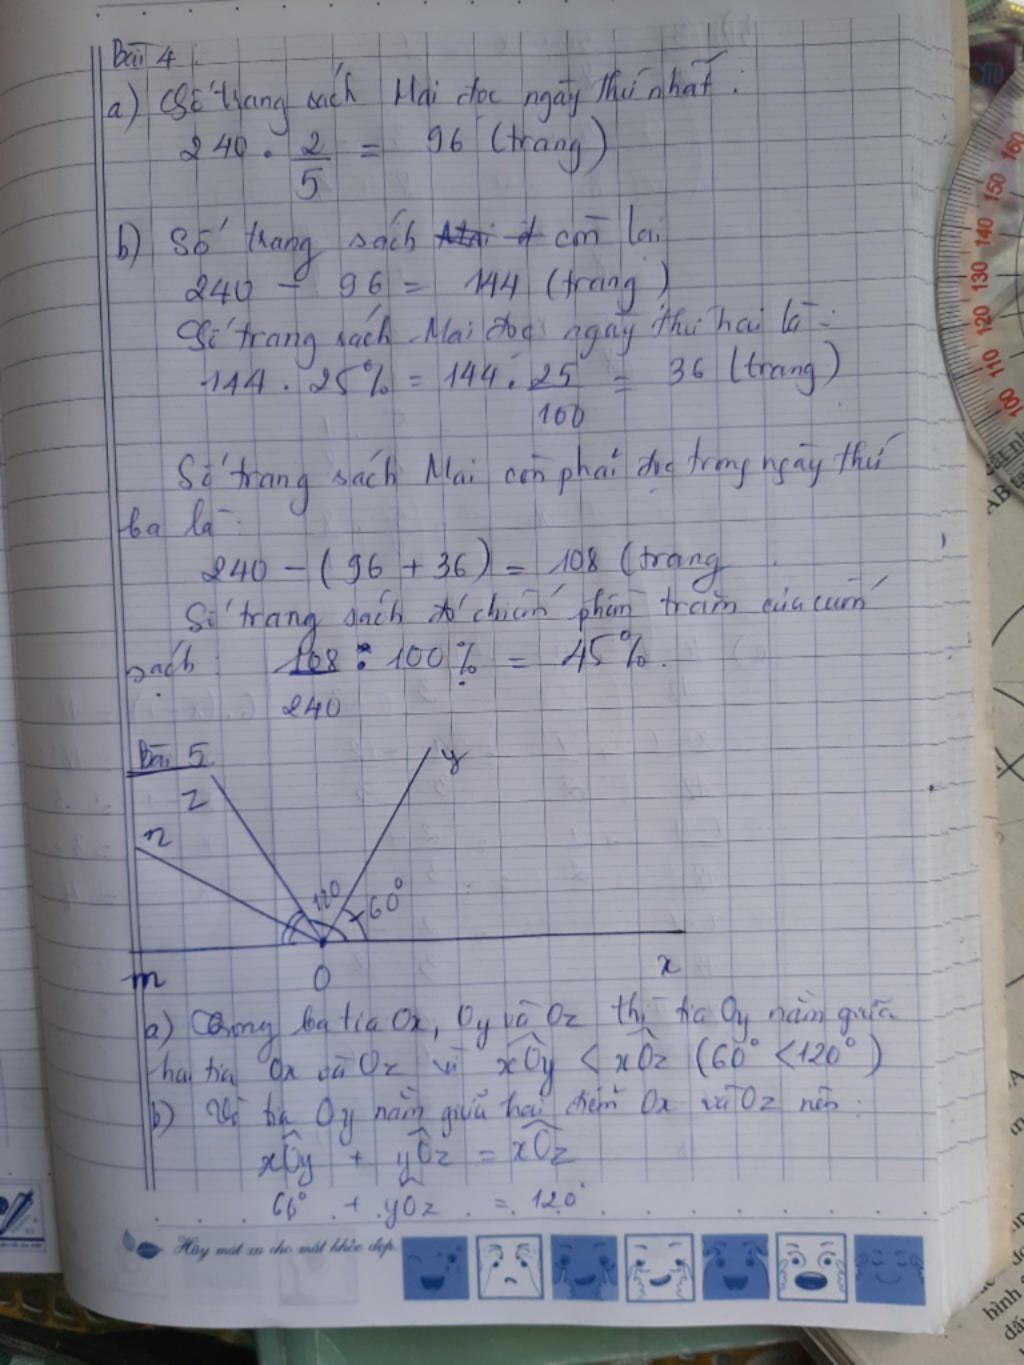 Bài 4
a) Số trang sách Mai đọc ngày thứ nhất:
240 . 2/5 = 96 (trang)
b) Số trang sách còn lại
240 - 96 = 144 (trang)
Số trang sách Mai đọc ngày thứ hai là:
144 . 25% = 144 . 25/100 = 36 (trang)
Số trang sách Mai còn phải đọc trong ngày thứ
ba là:
240 - (96 + 36) = 108 (trang
Số trang sách đó chiếm phần trăm của cuốn
sách 108/240 : 100% = 45%.
Bài 5
y
z
n
120
60°
m
O
x
a) Trong ba tia Ox, Oy và Oz thì tia Oy nằm giữa
hai tia Ox và Oz vì xOy < xOz (60° < 120°)
b) Vì tia Oy nằm giữa hai điểm Ox và Oz nên:
xOy + yOz = xOz
60° + yOz = 120°
Hãy mát xa cho mắt khỏe đẹp
160
150
140
130
120
110
100
AB
hình